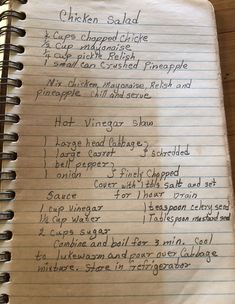 Chicken Salad
2 Cups Chopped Chicke
½ Cup mayonaise
¼ Cup pickle Relish
1 Small Can Crushed Pineapple
Mix Chicken, Mayonaise, Relish and
pineapple chill and serve
Hot Vinegar Slaw
1 Large head Cabbage
1 large Carrot } shredded
1 bell pepper
1 onion } finely Chopped
Cover with 1 tbls salt and set
Sauce for 1 hour Drain
1 Cup Vinegar 1 teaspoon celery seed
½ Cup Water 1 Tablespoon mustard seed
2 Cups sugar
Combine and boil for 3 min. Cool
to lukewarm and pour over Cabbage
mixture. Store in refrigerator